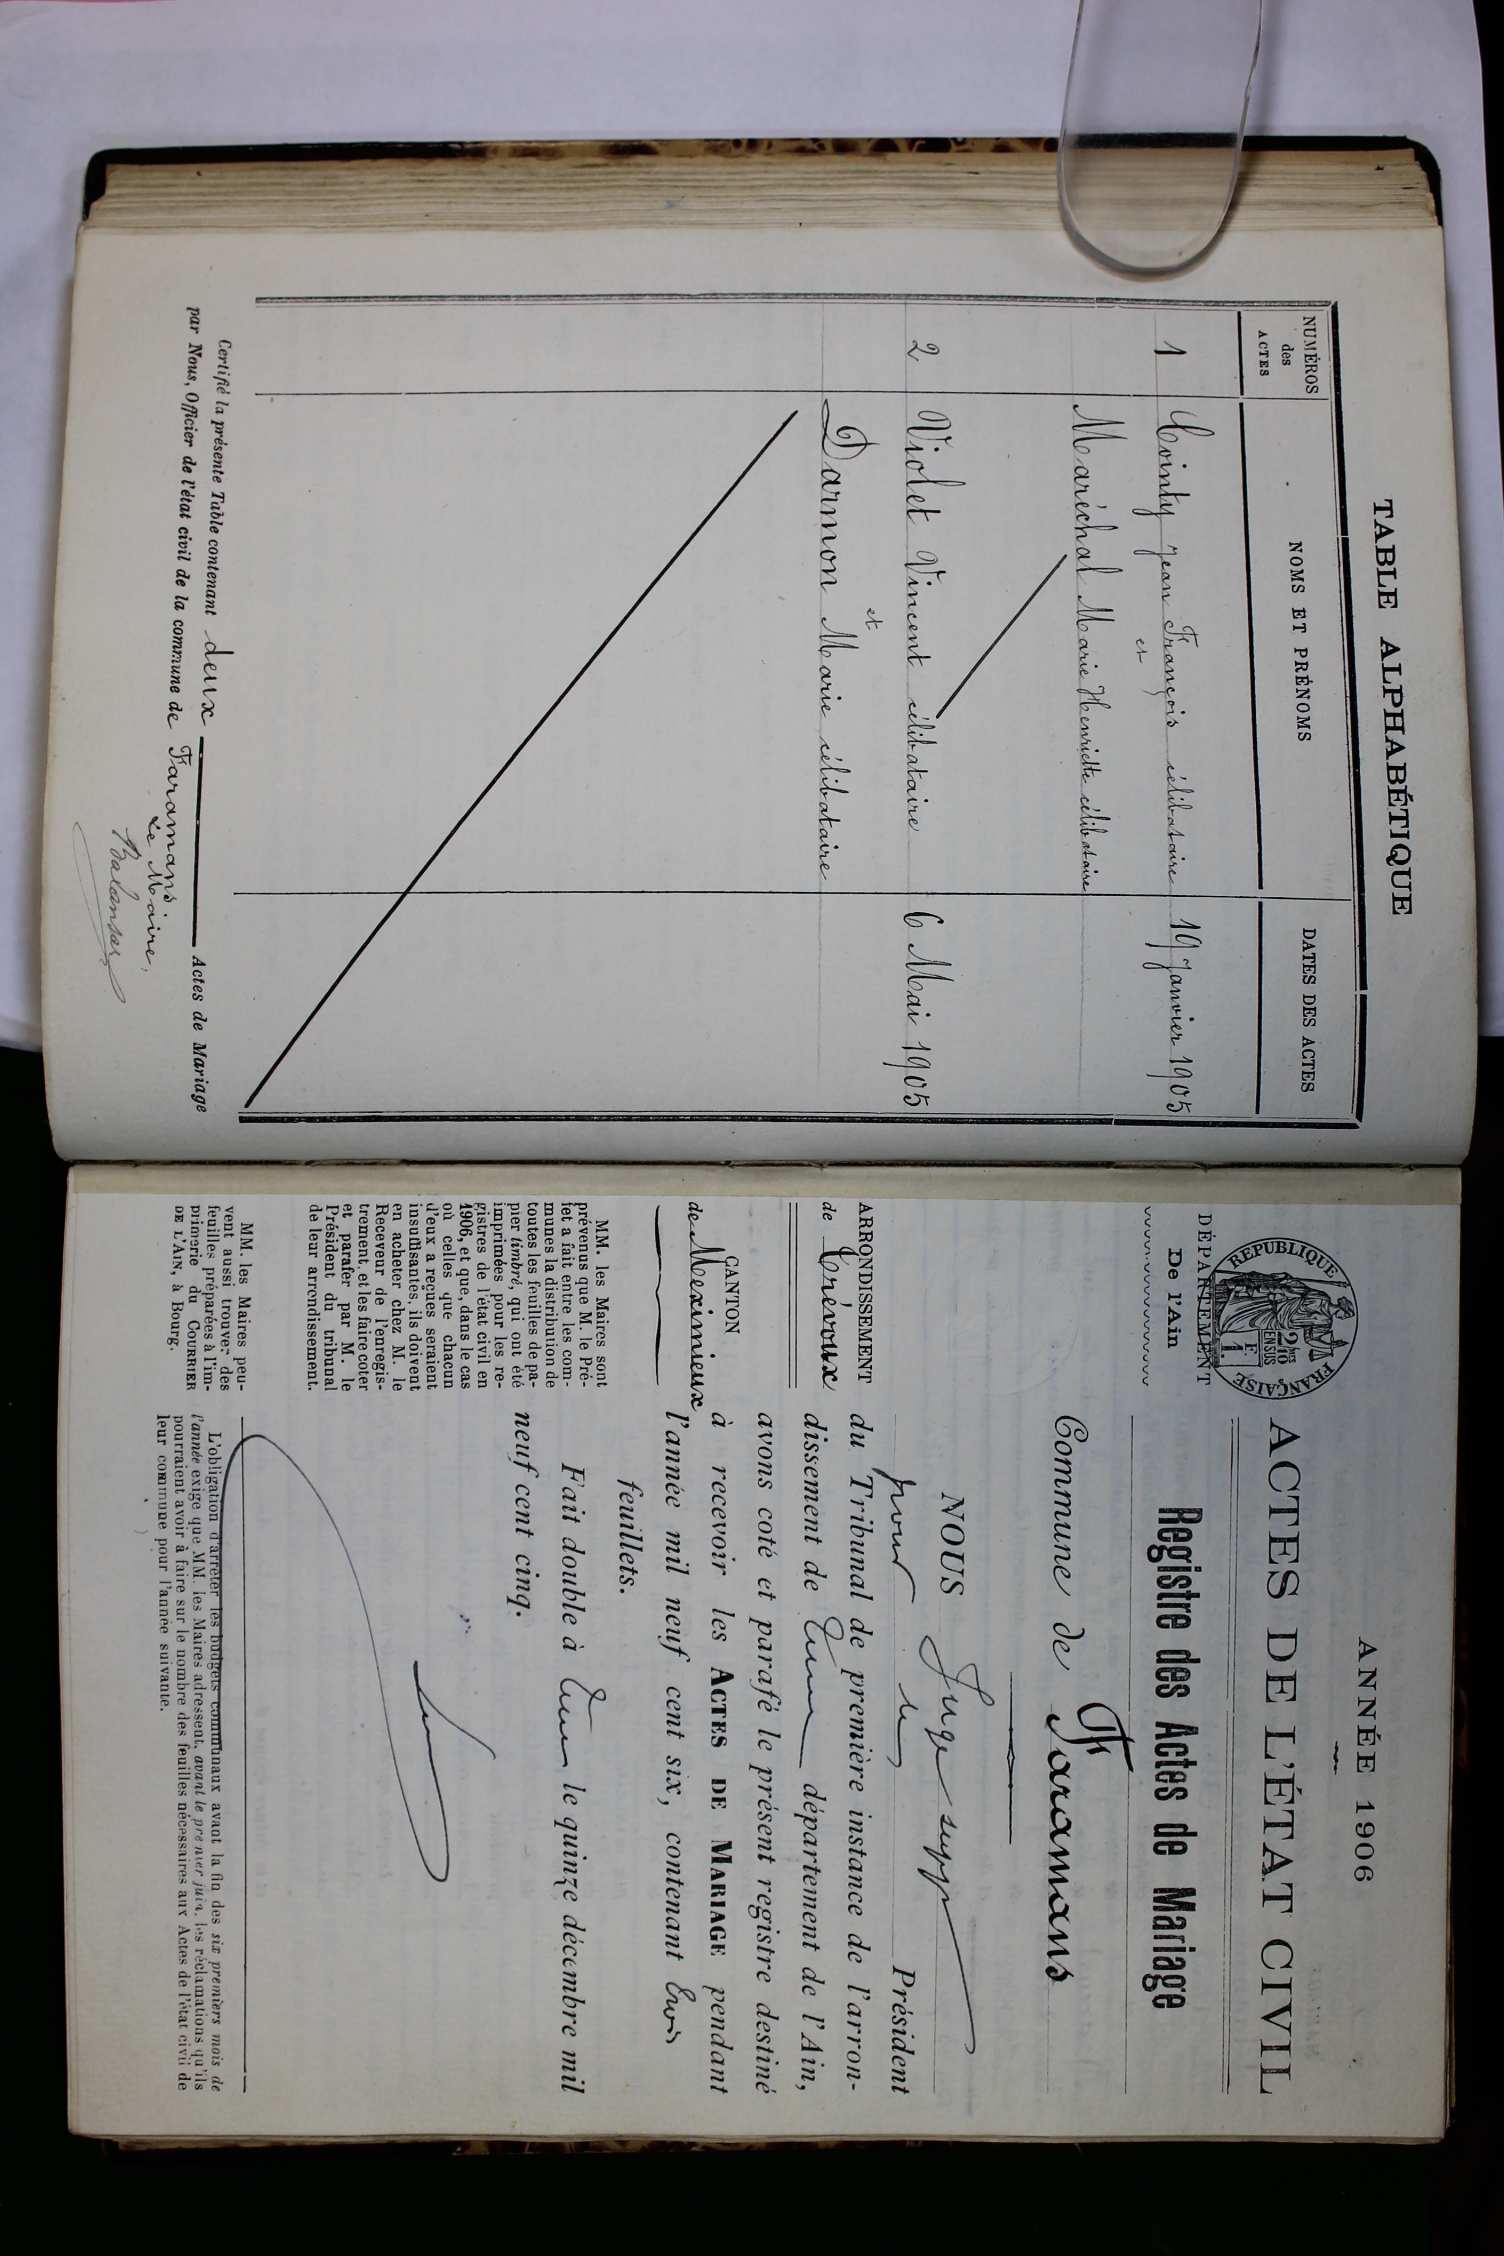 TABLE ALPHABÉTIQUE
NUMÉROS
des
ACTES
NOMS ET PRÉNOMS
DATES DES ACTES
1 Cointy Jean François célibataire 19 Janvier 1905
et
Maréchal Marie Henriette célibataire
2 Violet Vincent célibataire 6 Mai 1905
et
Darmon Marie célibataire
Certifié la présente Table contenant deux Actes de Mariage
par Nous, Officier de l'état civil de la commune de Faramans.
Le Maire,
ANNÉE 1906
ACTES DE L'ÉTAT CIVIL
REPUBLIQUE FRANÇAISE
DÉPARTEMENT
De l'Ain
ARRONDISSEMENT
de Trévoux
CANTON
de Meximieux
MM. les Maires sont
prévenus que M. le Pré-
fet a fait entre les com-
munes la distribution de
toutes les feuilles de pa-
pier timbré, qui ont été
imprimées pour les re-
gistres de l'état civil en
1906, et que, dans le cas
où celles que chacun
d'eux a reçues seraient
insuffisantes, ils doivent
en acheter chez M. le
Receveur de l'enregis-
trement, et les faire coter
et parafer par M. le
Président du tribunal
de leur arrondissement.
MM. les Maires peu-
vent aussi trouver des
feuilles préparées à l'im-
primerie du COURRIER
DE L'AIN, à Bourg.
Registre des Actes de Mariage
Commune de Faramans
NOUS Juge supp
pour le Président
du Tribunal de première instance de l'arron-
dissement de département de l'Ain,
avons coté et parafé le présent registre destiné
à recevoir les ACTES DE MARIAGE pendant
l'année mil neuf cent six, contenant trois
feuillets.
Fait double à le quinze décembre mil
neuf cent cinq.
L'obligation d'arrêter les budgets communaux avant la fin des six premiers mois de
l'année exige que MM. les Maires adressent, avant le premier juin, les réclamations qu'ils
pourraient avoir à faire sur le nombre des feuilles nécessaires aux Actes de l'état civil de
leur commune pour l'année suivante.